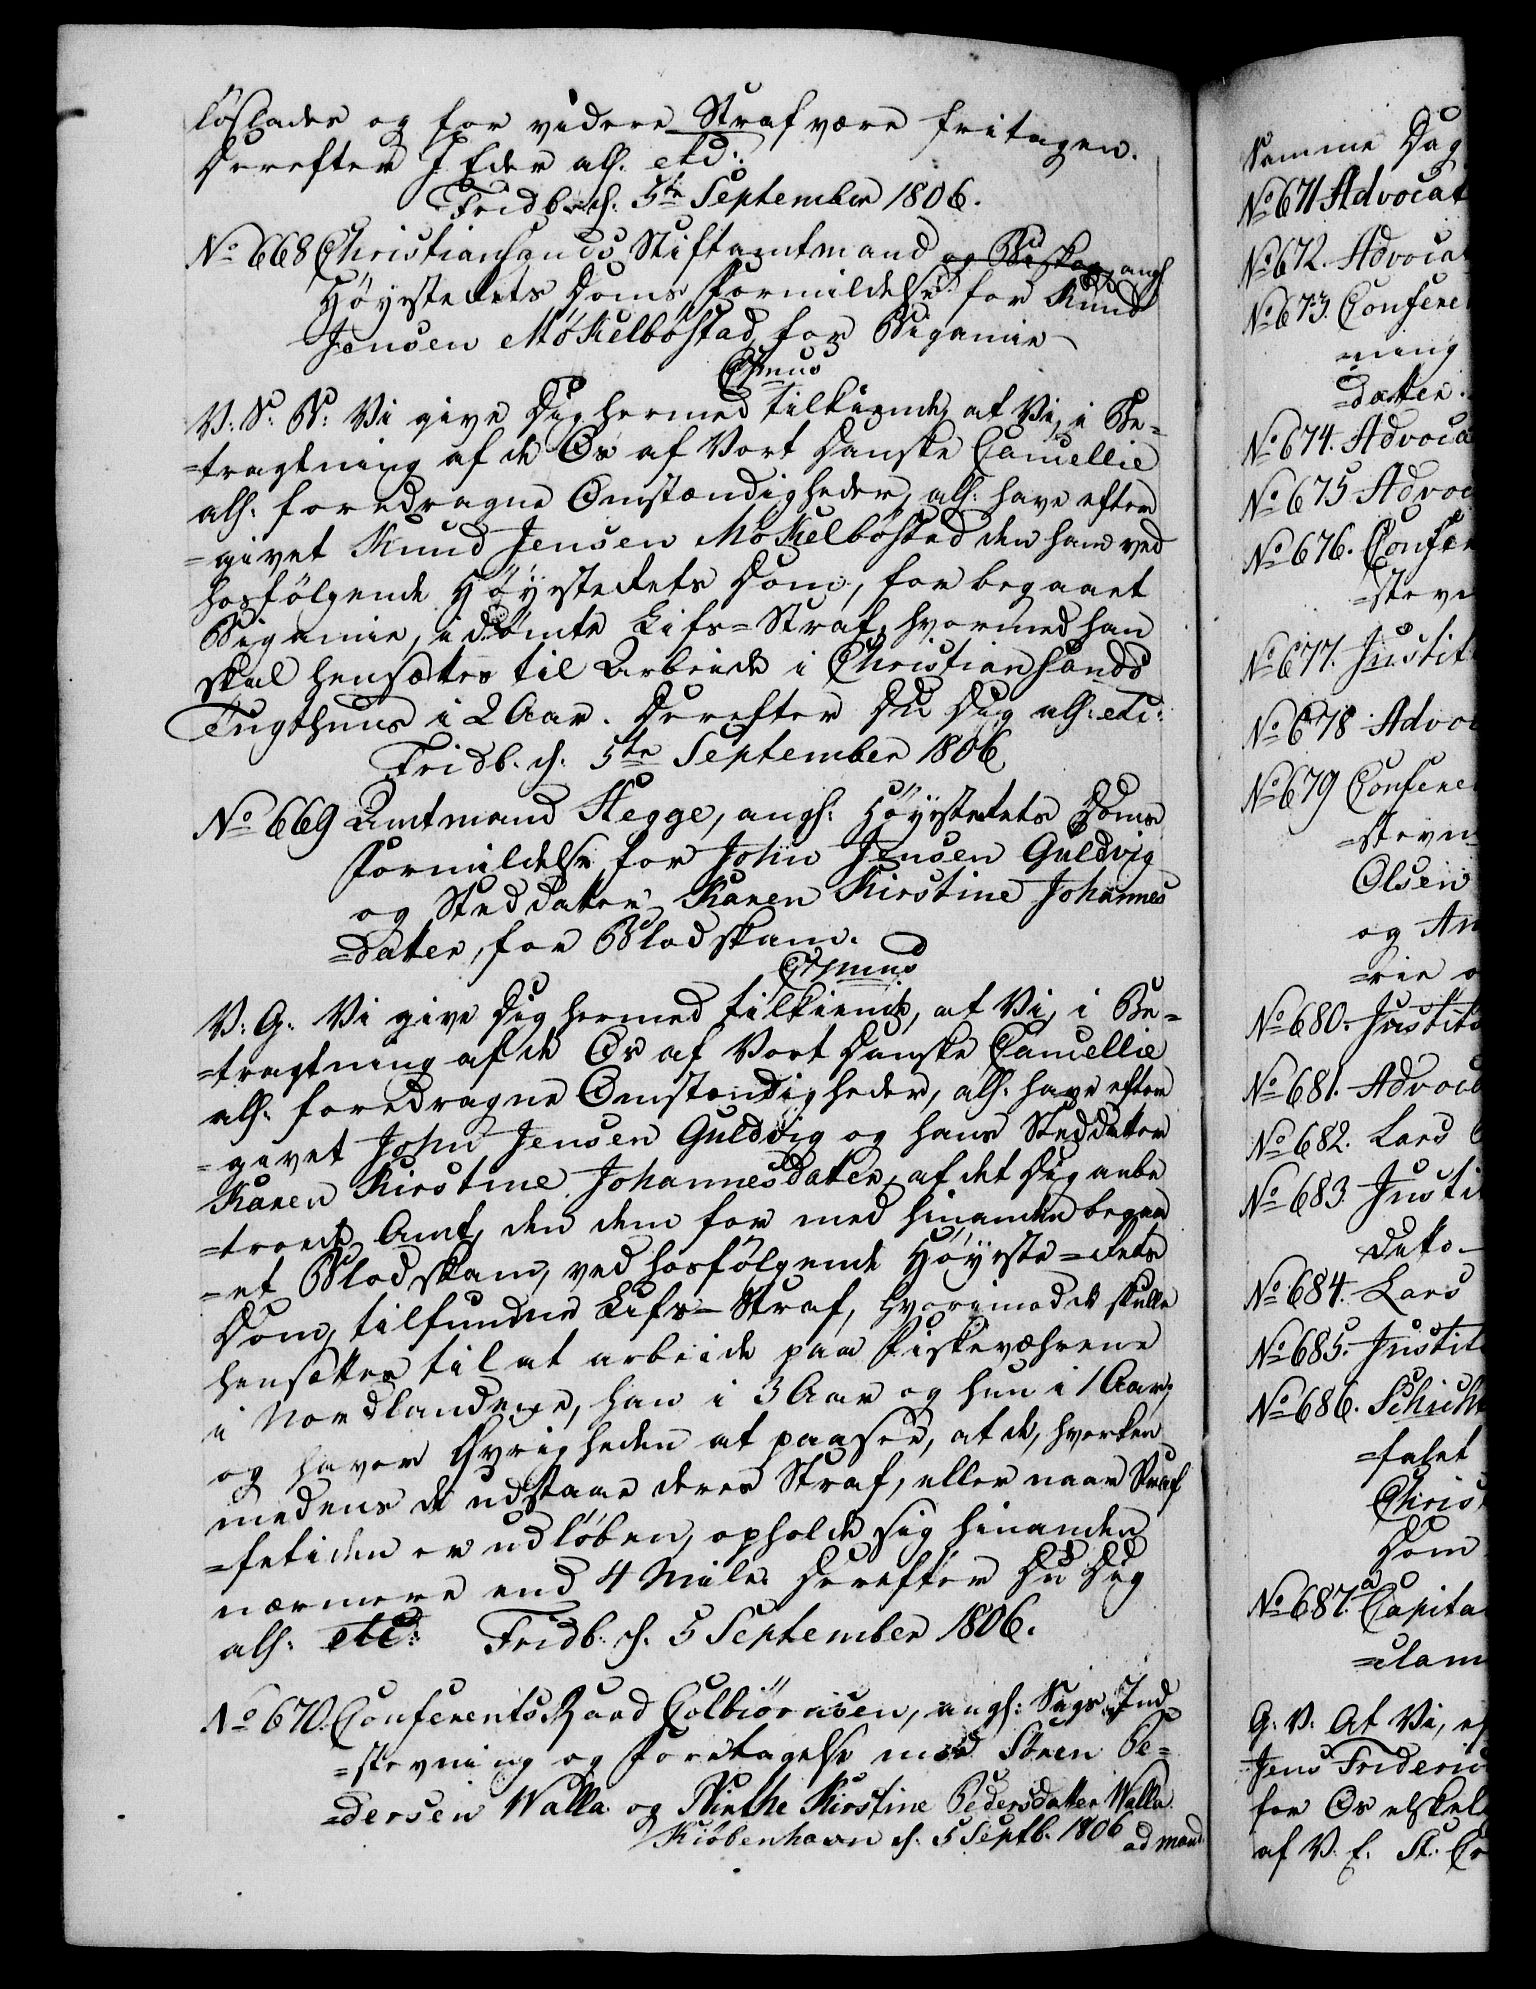 løslades og for videre Straf være fritagen.
Derefter I Eder alh. etc:
Fridb. d. 5te September 1806.
No 668 Christiansands Stiftamtmand og Biskop, angh
Høyesterets Doms Formildelse for Knud
Jensen Møkelbøstad for Bigamie
Cfmus
V. S. B: Vi give Dig hermed tilkiende, at Vi, i Be-
=tragtning af de Os af Vort Danske Cancellie
alh. foredragne Omstændigheder, alh. have efter
=givet Knud Jensen Møkelbøstad den ham ved
hosfølgende Høyesterets Dom, for begaaet
Bigamie, idømte Lifs=Straf, hvormod han
skal hensættes til Arbeide i Christiansands
Tugthuus i 2 Aar. Derefter Du Dig alh. etc:
Fridb. d. 5te September 1806
No 669 Amtmand Hegge, angh: Høyesterets Doms
Formildelse for John Jensen Guldvig
og Steddatter Karen Kirstine Johannes
=datter, for Blodskam.
Cfmus
V. G. Vi give Dig hermed tilkiende, at Vi, i Be-
=tragtning af de Os af Vort Danske Cancellie
alh. foredragne Omstændigheder, alh. have efter
=givet John Jensen Guldvig og hans Steddatter
Karen Kirstine Johannesdatter, af det Dig anbe
=troede Amt, den dem for med hinanden begaa
=et Blodskam, ved hosfølgende Høyeste=Rets
Dom, tilfundne Lifs=Straf, hvorimod de skulle
hensættes til at arbeide paa Fiskeværerne
i Nordlandene, han i 3 Aar og hun i 1 Aar;
og haver Øvrigheden at paasee, at de, hverken
medens de udstaae deres Straf, eller naar Straf
=fetiden er udløben, opholde sig hinanden
nærmere end 4 Mile. Derefter Du Dig
alh. etc: Fridb. d. 5 September 1806.
No 670. Conferents Raad Colbiørnsen, angh: Sags Ind
=stevning og Foretagelse mod Søren Pe=
=dersen Walla og Birthe Kirstine Pedersdatter Walla
Kiøbenhavn d. 5 Septb. 1806 ad mand
Samme Dag
No 671 Advocat
No 672. Advocat
No 673. Confere
ning
=datter.
No 674. Advoca
No 675 Advoc
No 676. Confer
=steve
No 677. Justit
No 678 Advoc
No 679 Confere
=stevn
Olsen
og An
=rie
No 680. Justits
No 681. Advoc
No 682. Lars
No 683 Justit
ditto
No 684. Lars
No 685. Justit
No 686. Schicht
=falet
Christ
Dom
No 687.a Capita
=clam
G. V. At Vi, ef
Jens Frideric
for Os elskel
af V. E. St. Cr